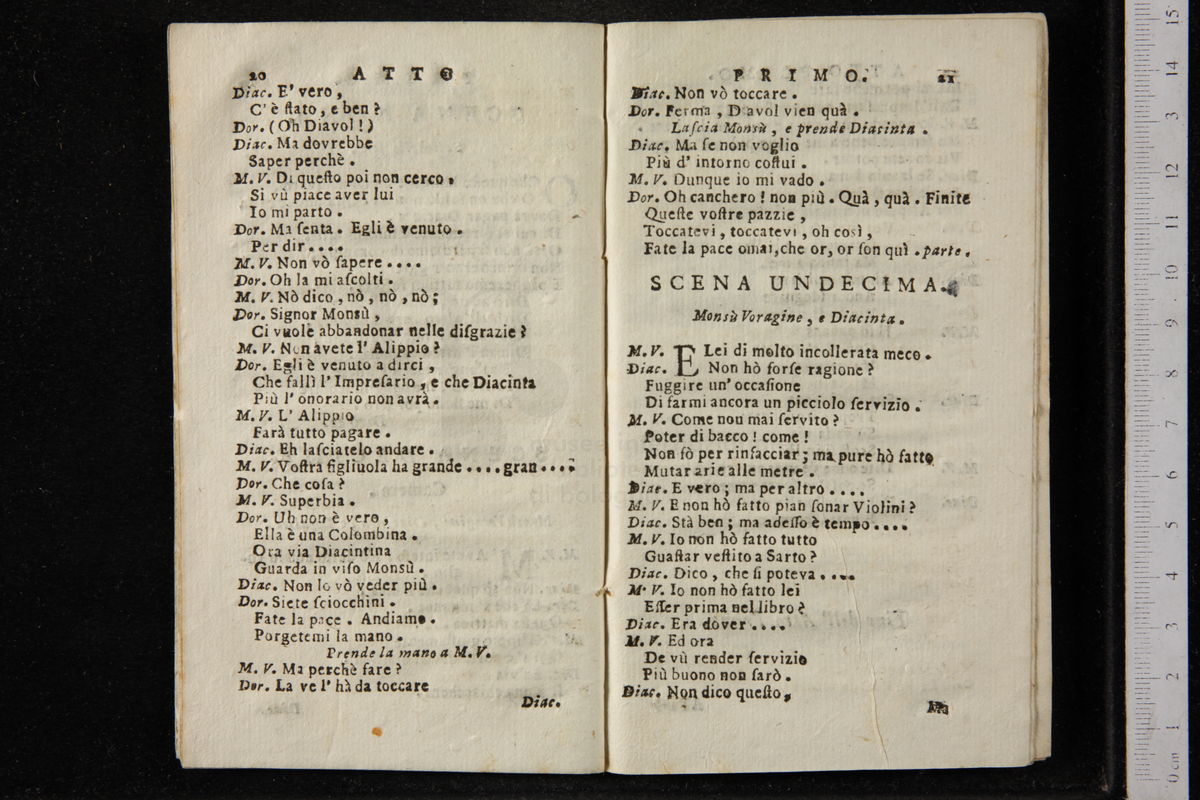 20 ATTO
Diac. E' vero,
C'è ſtato, e ben?
Dor. (Oh Diavol!)
Diac. Ma dovrebbe
Saper perchè.
M. V. Di queſto poi non cerco.
Si vù piace aver lui
Io mi parto.
Dor. Ma ſenta. Egli è venuto.
Per dir....
M. V. Non vò ſapere....
Dor. Oh la mi aſcolti.
M. V. Nò dico, nò, nò, nò;
Dor. Signor Monsù,
Ci vuole abbandonar nelle diſgrazie?
M. V. Non avete l'Alippio?
Dor. Egli è venuto a dirci,
Che fallì l'Impreſario, e che Diacinta
Più l'onorario non avrà.
M. V. L'Alippio
Farà tutto pagare.
Diac. Eh laſciatelo andare.
M. V. Voſtra figliuola ha grande....gran....
Dor. Che coſa?
M. V. Superbia.
Dor. Uh non è vero,
Ella è una Colombina.
Ora via Diacintina
Guarda in viſo Monsù.
Diac. Non lo vò veder più.
Dor. Siete ſciocchini.
Fate la pace. Andiamo.
Porgetemi la mano.
Prende la mano a M. V.
M. V. Ma perchè fare?
Dor. La ve l'hà da toccare
Diac.
PRIMO. 21
Diac. Non vò toccare.
Dor. Ferma, Diavol vien quà.
Laſcia Monsù, e prende Diacinta.
Diac. Ma ſe non voglio
Più d'intorno coſtui.
M. V. Dunque io mi vado.
Dor. Oh canchero! non più. Quà, quà. Finite
Queſte voſtre pazzie,
Toccatevi, toccatevi, oh così,
Fate la pace omai, che or, or ſon quì. parte.
SCENA UNDECIMA.
Monsù Voragine, e Diacinta.
M. V. E Lei di molto incollerata meco.
Diac. Non hò forſe ragione?
Fuggire un'occaſione
Di farmi ancora un picciolo ſervizio.
M. V. Come non mai ſervito?
Poter di bacco! come!
Non ſò per rinfacciar; ma pure hò fatto
Mutar arie alle metre.
Diac. E vero; ma per altro....
M. V. E non hò fatto pian ſonar Violini?
Diac. Stà ben; ma adeſſo è tempo....
M. V. Io non hò fatto tutto
Guaſtar veſtito a Sarto?
Diac. Dico, che ſi poteva....
M. V. Io non hò fatto lei
Eſſer prima nel libro?
Diac. Era dover....
M. V. Ed ora
De vù render ſervizio
Più buono non ſarò.
Diac. Non dico queſto,